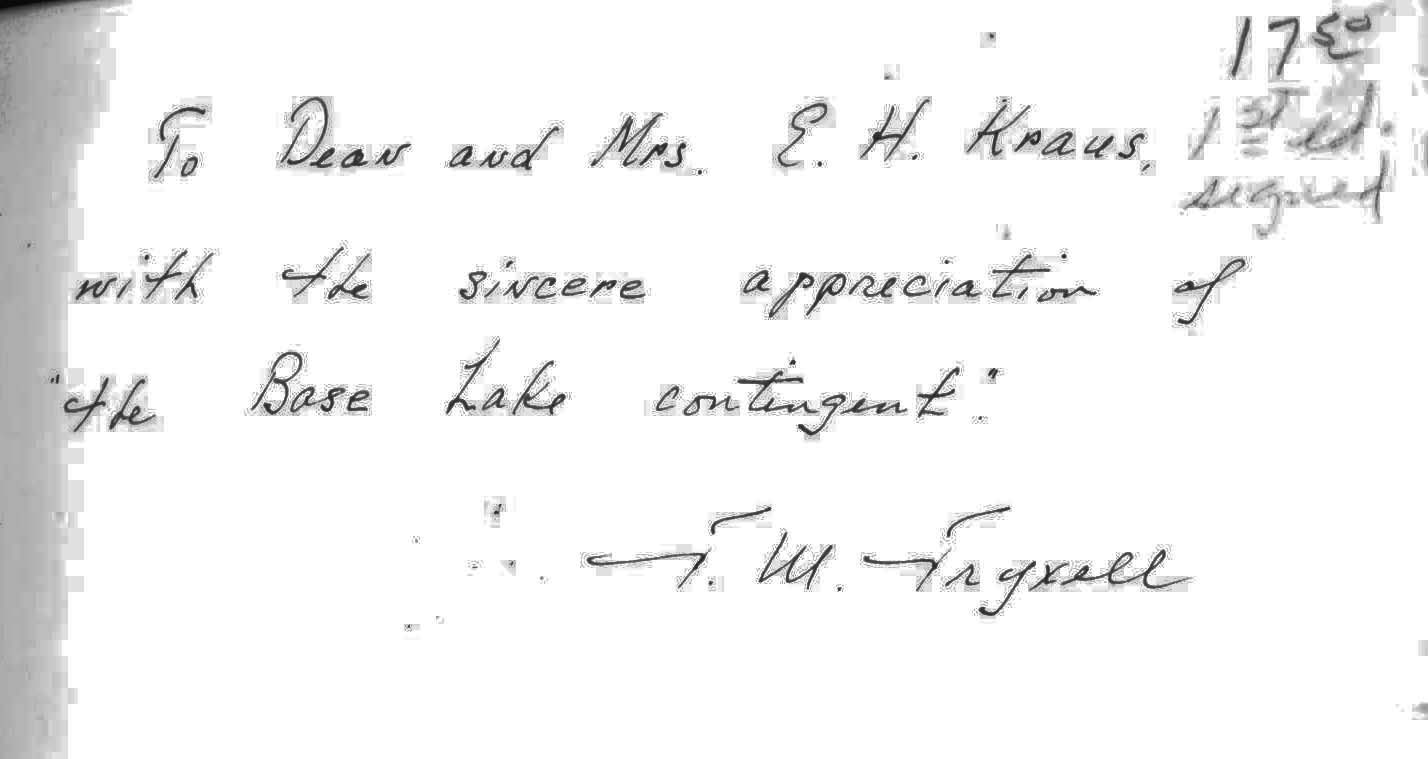 17 50
To Dean and Mrs. E. H. Kraus,
1st ed.
signed
with the sincere appreciation of
"the Base Lake contingent."
F. M. Fryxell